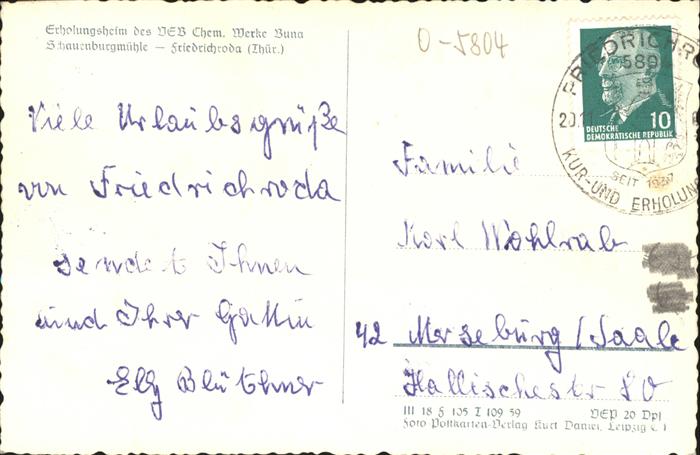 Erholungsheim des VEB Chem. Werke Buna
Schauenburgmühle – Friedrichroda (Thür.)
0-5804
Viele Urlaubsgrüße
von Friedrichroda
sendet Ihnen
und Ihrer Gattin
Elly Blüthner
FRIEDRICHRO
589
20.11
SEIT 1837
KUR- UND ERHOLUN
10
DEUTSCHE
DEMOKRATISCHE REPUBLIK
Familie
Karl Wohlrab
42 Merseburg/Saale
Hallischestr 80
III 18 § 105 I 109 59 VEP 20 Dpf
Foto Postkarten-Verlag Kurt Daniel, Leipzig C 1